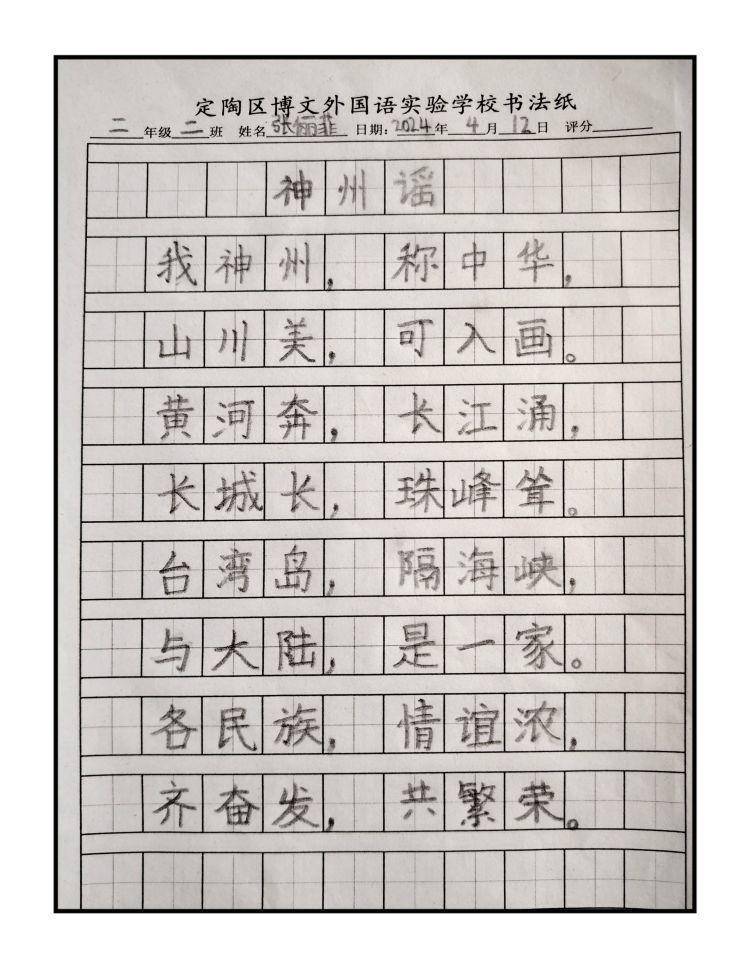 定陶区博文外国语实验学校书法纸
二年级二班 姓名张俪菲 日期:2024年4月12日 评分
神州谣
我神州,称中华,
山川美,可入画。
黄河奔,长江涌,
长城长,珠峰耸。
台湾岛,隔海峡,
与大陆,是一家。
各民族,情谊浓,
齐奋发,共繁荣。